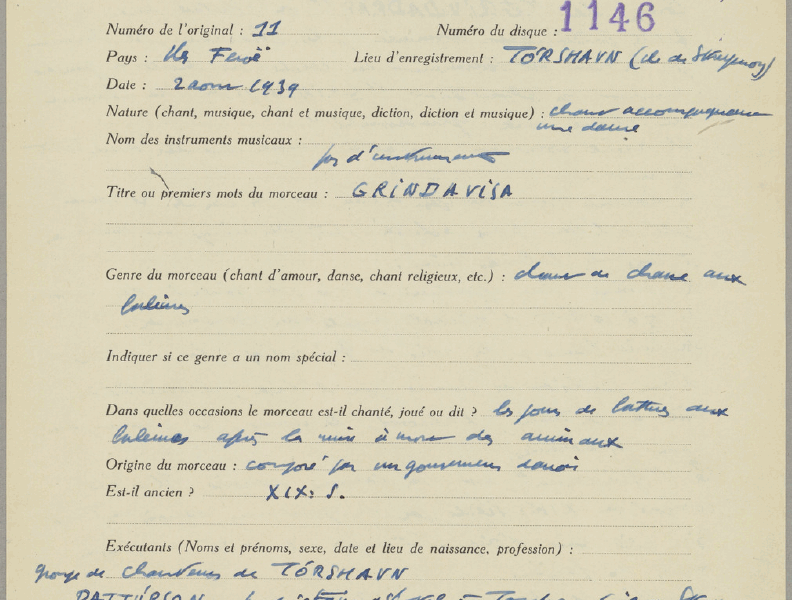 Numéro de l'original : 11 Numéro du disque : 1146
Pays : Iles Feroë Lieu d'enregistrement : TÓRSHAVN (île de Streymoy)
Date : 2 aout 1939
Nature (chant, musique, chant et musique, diction, diction et musique) : chant accompagnant
une danse
Nom des instruments musicaux :
pas d'instruments
Titre ou premiers mots du morceau : GRINDAVISA
Genre du morceau (chant d'amour, danse, chant religieux, etc.) : chant de chasse aux
baleines
Indiquer si ce genre a un nom spécial :
Dans quelles occasions le morceau est-il chanté, joué ou dit ? les jours de battues aux
baleines après la mise à mort des animaux
Origine du morceau : composé par un gouverneur danois
Est-il ancien ? XIX: S.
Exécutants (Noms et prénoms, sexe, date et lieu de naissance, profession) :
groupe de chanteurs de TÓRSHAVN